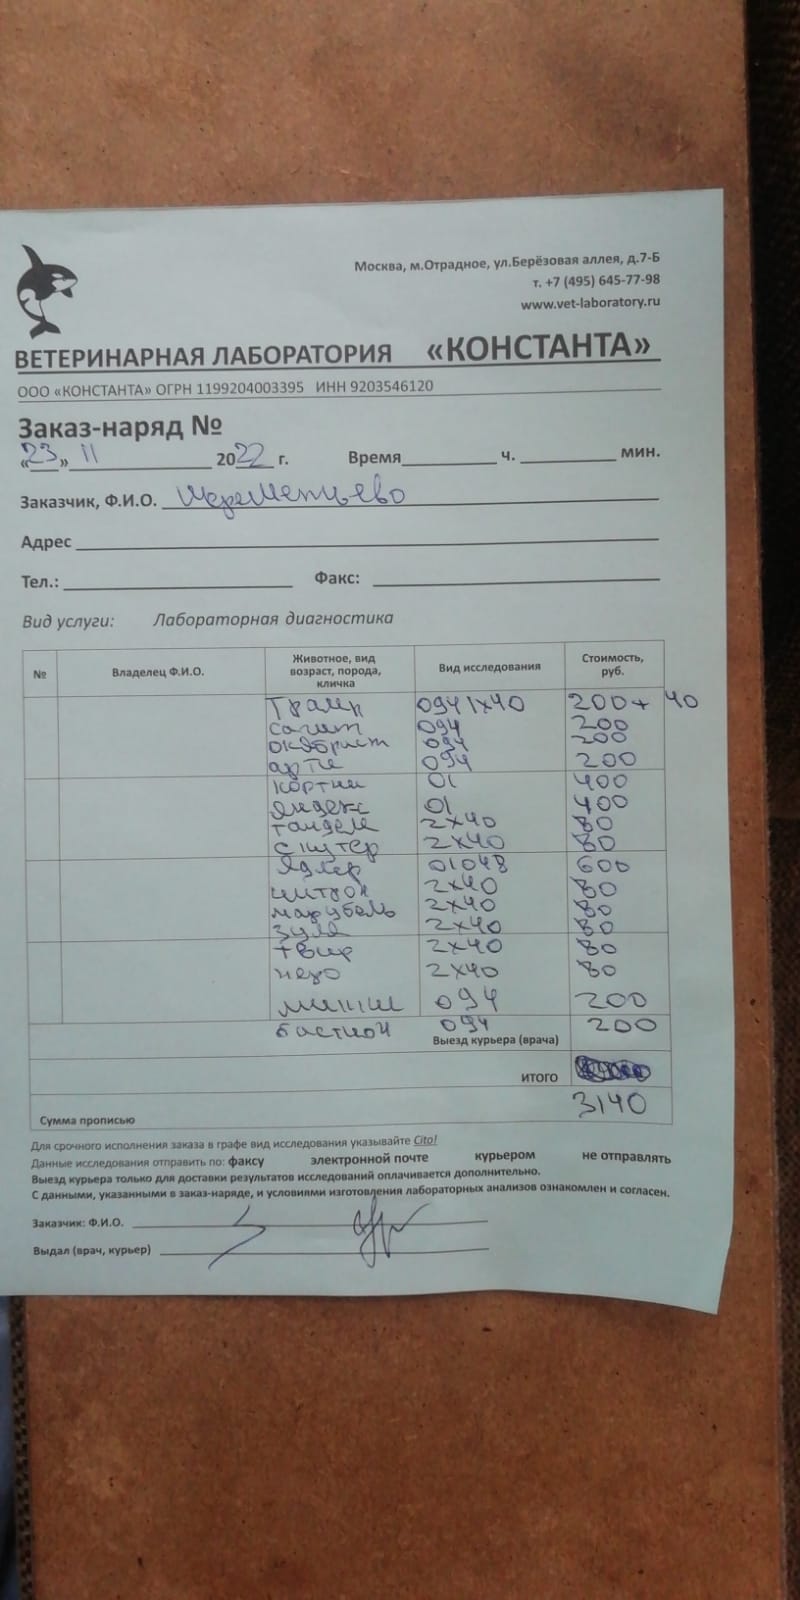 Москва, м.Отрадное, ул.Берёзовая аллея, д.7-Б
т. +7 (495) 645-77-98
www.vet-laboratory.ru
ВЕТЕРИНАРНАЯ ЛАБОРАТОРИЯ «КОНСТАНТА»
ООО «КОНСТАНТА» ОГРН 1199204003395 ИНН 9203546120
Заказ-наряд №
«23» 11 2022 г. Время ч. мин.
Заказчик, Ф.И.О. Шереметьево
Адрес
Тел.: Факс:
Вид услуги: Лабораторная диагностика
№ Владелец Ф.И.О. Животное, вид возраст, порода, кличка Вид исследования Стоимость, руб.
Трамп 094 1х40 200+ 40
сагит 094 200
октябрист 094 200
арти 094 200
кортни 01 400
яндекс 01 400
тандем 2х40 80
скутер 2х40 80
Адлер 01048 600
цитрон 2х40 80
2х40 80
зула 2х40 80
твир 2х40 80
неро 2х40 80
094 200
бастион 094 200
Выезд курьера (врача)
ИТОГО
3140
Сумма прописью
Для срочного исполнения заказа в графе вид исследования указывайте Cito!
Данные исследования отправить по: факсу электронной почте курьером не отправлять
Выезд курьера только для доставки результатов исследований оплачивается дополнительно.
С данными, указанными в заказ-наряде, и условиями изготовления лабораторных анализов ознакомлен и согласен.
Заказчик: Ф.И.О.
Выдал (врач, курьер)